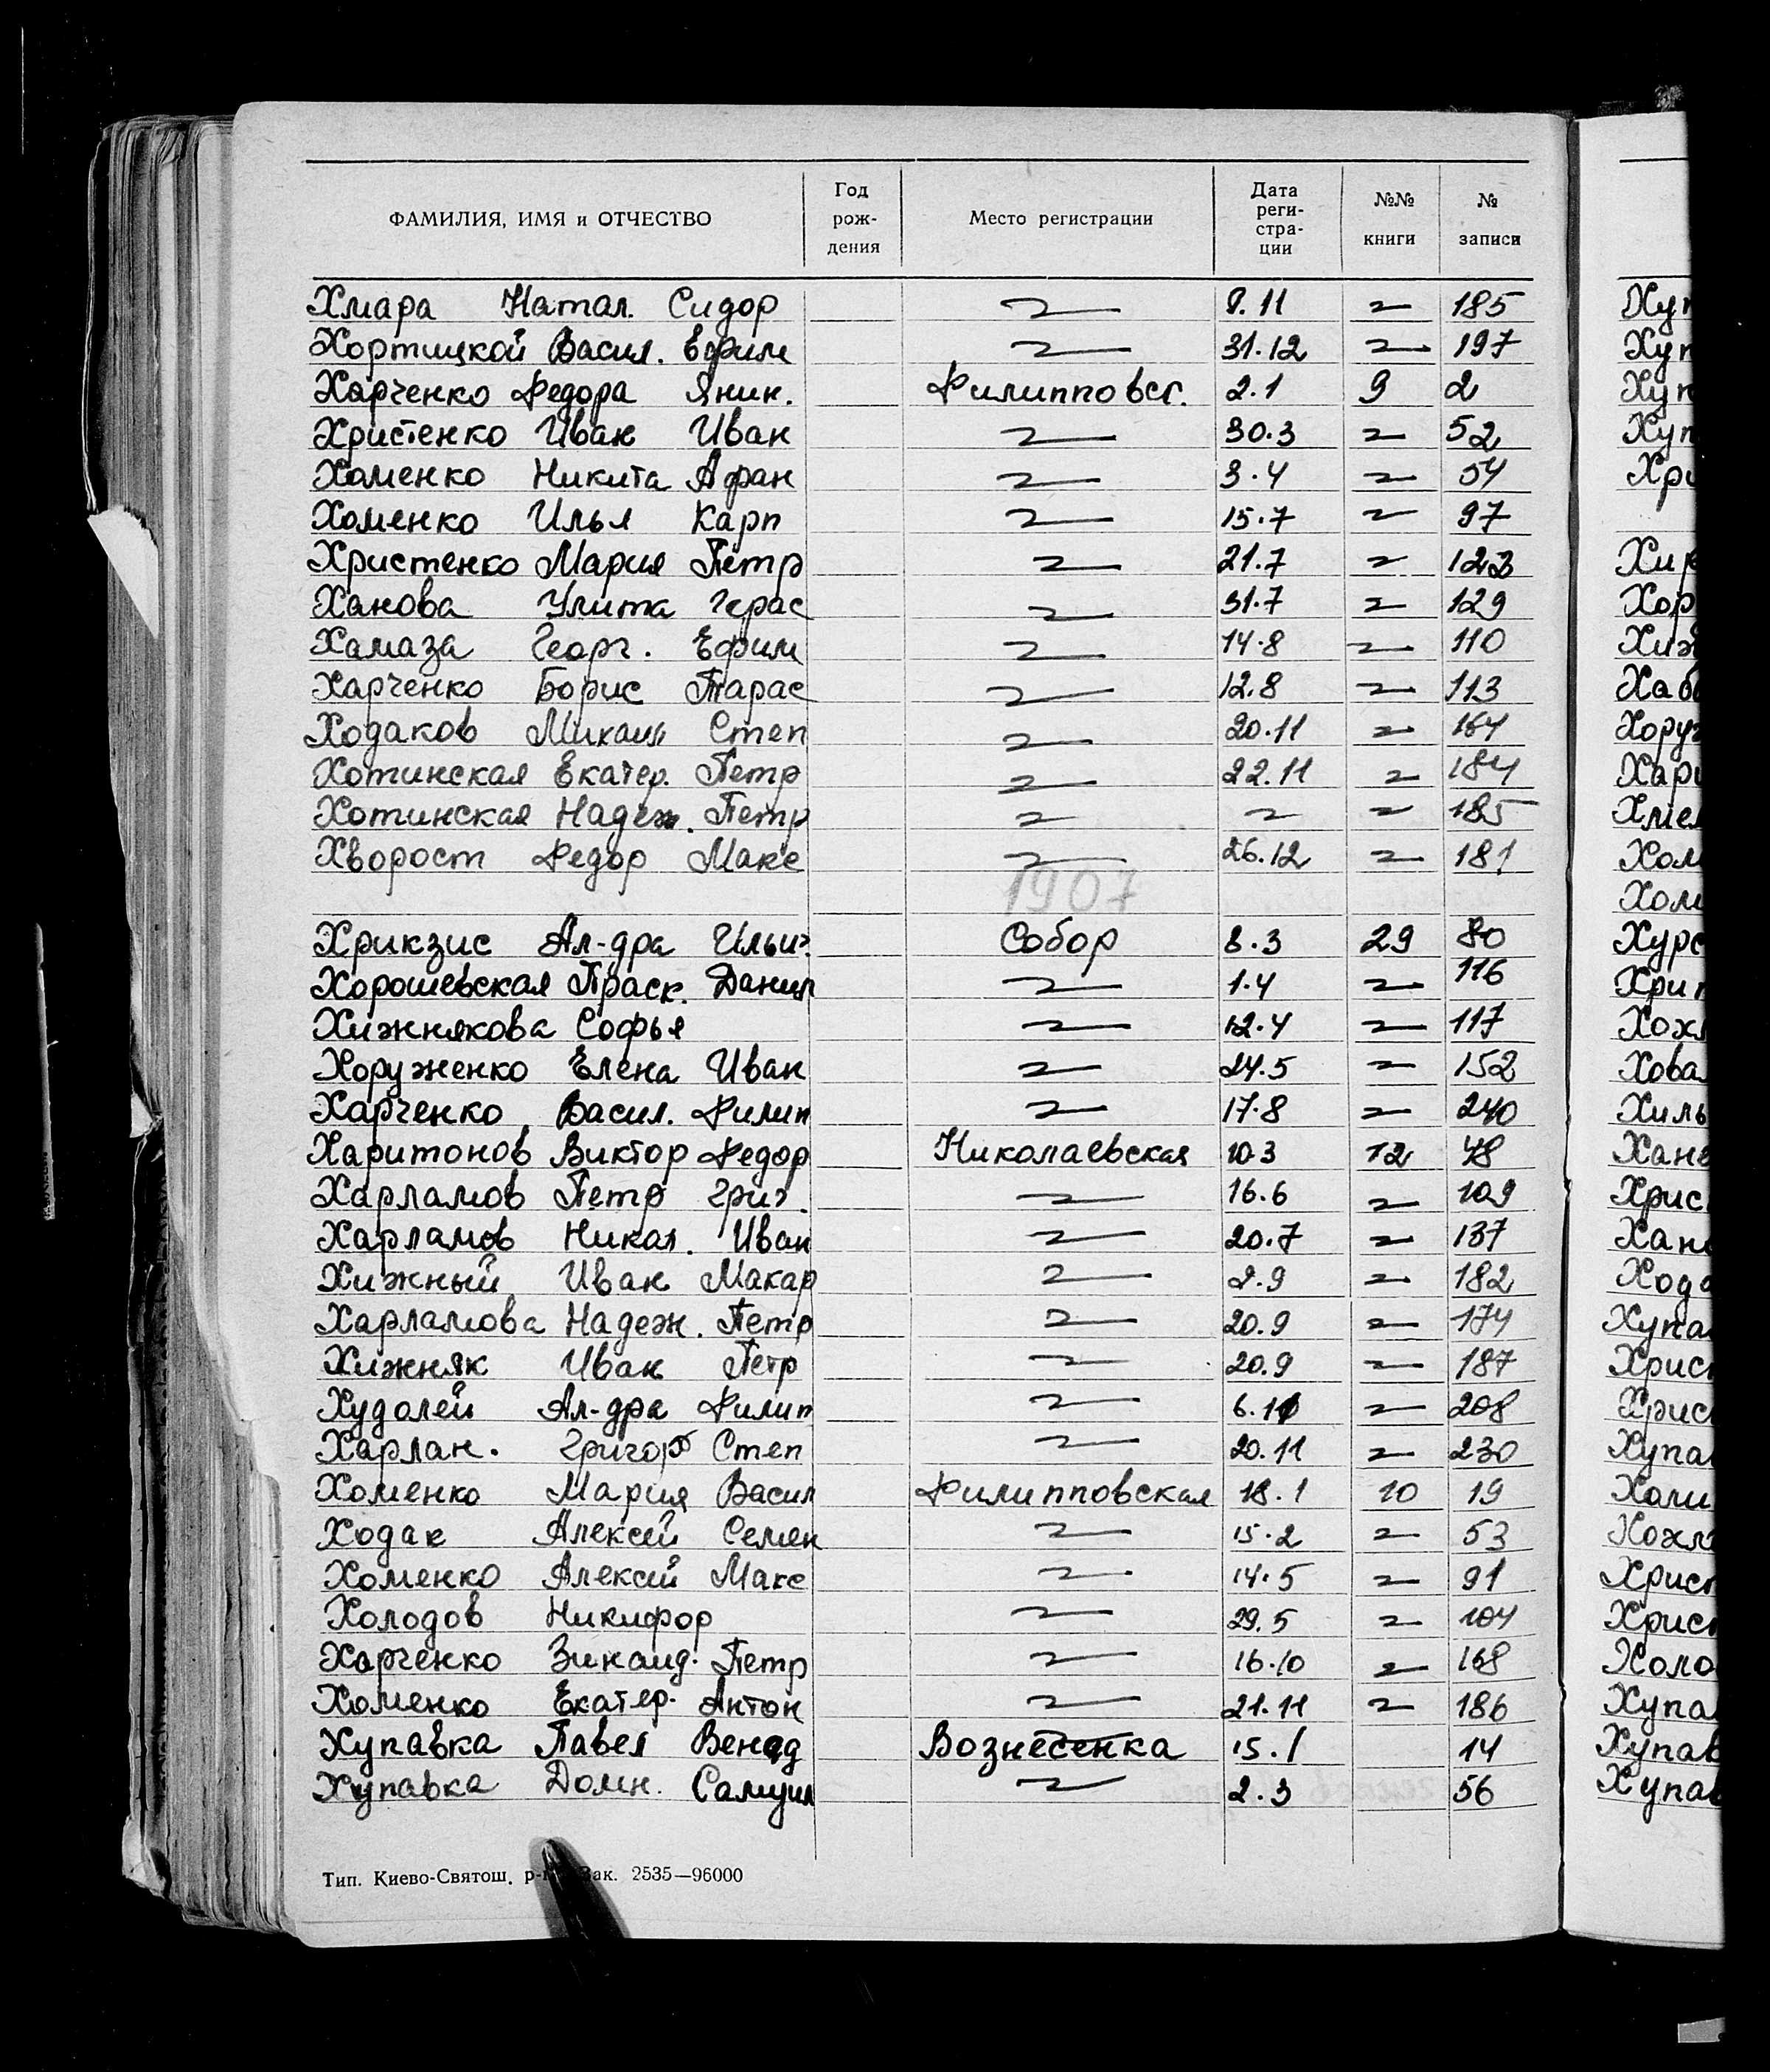 ФАМИЛИЯ, ИМЯ и ОТЧЕСТВО Год рож- дения Место регистрации Дата реги- стра- ции №№ книги № записи
Хмара Натал. Сидор 〃 9.11 〃 185
Хортицкой Васил. Ефим 〃 31.12 〃 197
Харченко Федора Янин. Филипповск. 2.1 9 2
Христенко Иван Иван 〃 30.3 〃 52
Хоменко Никита Афан 〃 3.4 〃 54
Хоменко Илья Карп 〃 15.7 〃 97
Христенко Мария Петр 〃 21.7 〃 123
Ханова Улита Герас 〃 31.7 〃 129
Хамаза Георг. Ефим 〃 14.8 〃 110
Харченко Борис Тарас 〃 12.8 〃 113
Ходаков Михаил Степ 〃 20.11 〃 164
Хотинская Екатер. Петр 〃 22.11 〃 184
Хотинская Надеж. Петр 〃 〃 〃 185
Хворост Федор Макс 〃 26.12 〃 181
1907
Хрикзис Ал-дра Ильи. Собор 8.3 29 80
Хорошевская Праск. Данил 〃 1.4 〃 116
Хижнякова Софья 〃 12.4 〃 117
Хоруженко Елена Иван 〃 24.5 〃 152
Харченко Васил. Филип 〃 17.8 〃 240
Харитонов Виктор Федор Николаевская 10.3 12 48
Харламов Петр Григ. 〃 16.6 〃 109
Харламов Никол. Иван 〃 20.7 〃 137
Хижный Иван Макар 〃 2.9 〃 182
Харламова Надеж. Петр 〃 20.9 〃 174
Хижняк Иван Петр 〃 20.9 〃 187
Худолей Ал-дра Филип 〃 6.11 〃 208
Харлан. Григор Степ 〃 20.11 〃 230
Хоменко Мария Васил Филипповская 18.1 10 19
Ходак Алексей Семен 〃 15.2 〃 53
Хоменко Алексей Макс 〃 14.5 〃 91
Холодов Никифор 〃 29.5 〃 104
Харченко Зинаид. Петр 〃 16.10 〃 168
Хоменко Екатер. Антон 〃 21.11 〃 186
Хупавка Павел Венад Вознесенка 15.1 14
Хупавка Домн. Самуил 〃 2.3 56
Тип. Киево-Святош. Зак. 2535—96000